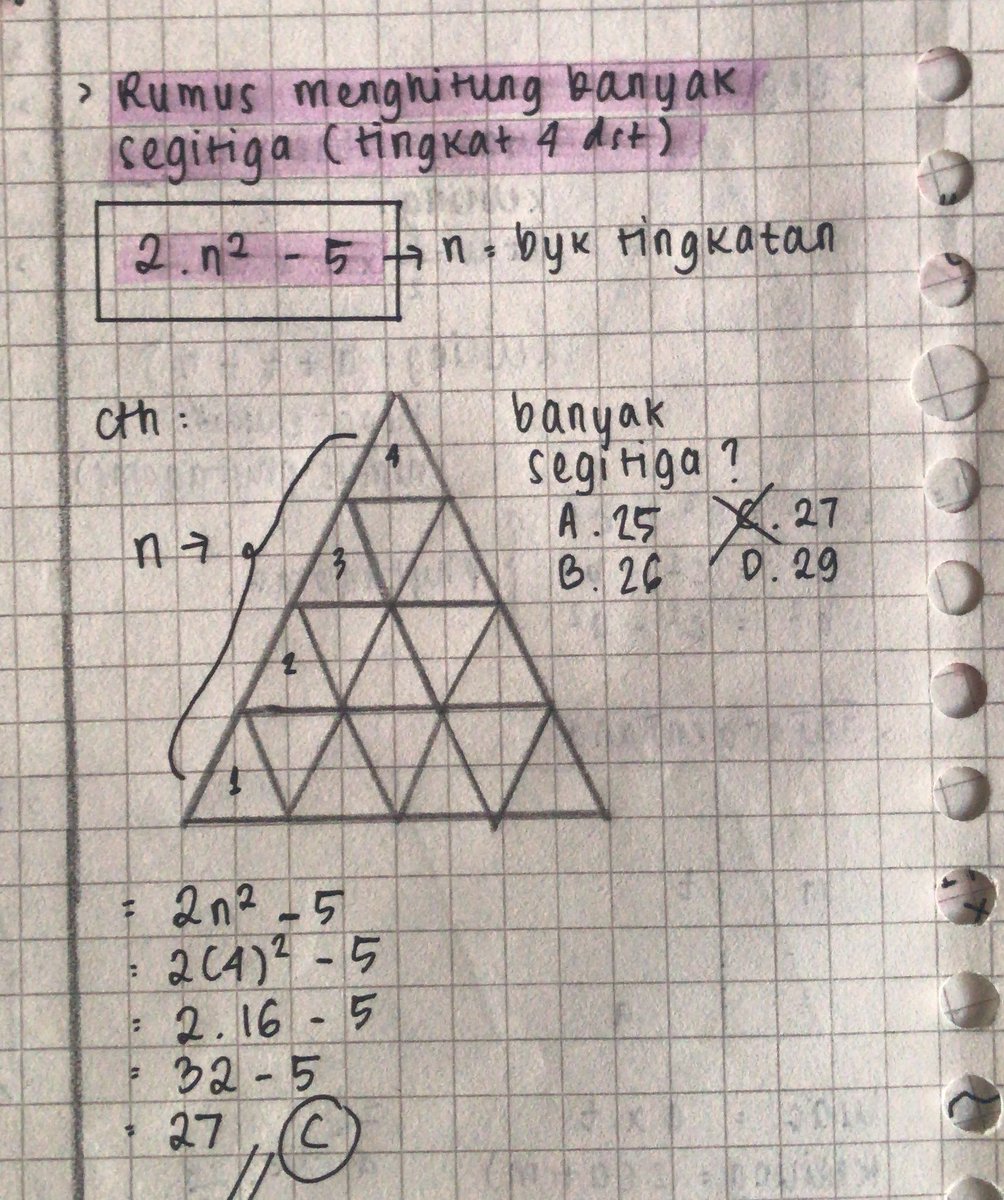 > Rumus menghitung banyak
segitiga (tingkat 4 dst)
2.n² - 5 → n = byk tingkatan
cth :
banyak
segitiga ?
A. 25 C. 27
B. 26 D. 29
n →
4
3
2
1
= 2n² - 5
= 2(4)² - 5
= 2.16 - 5
= 32 - 5
= 27 // C